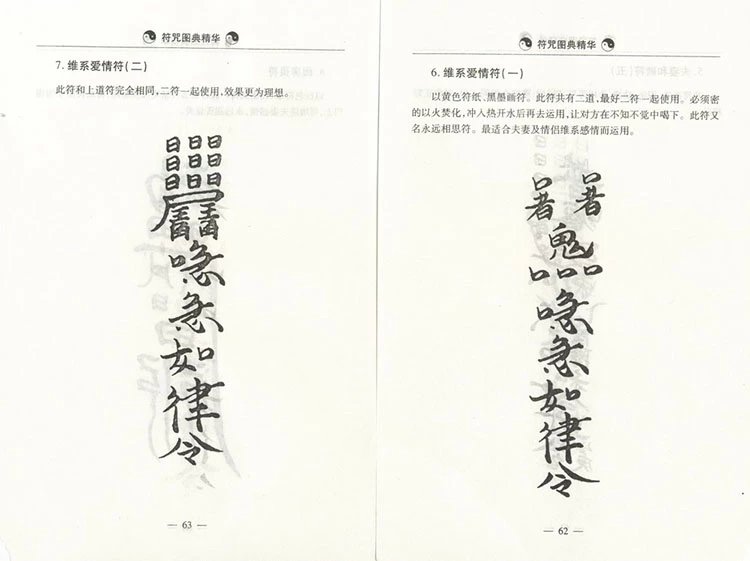 符咒图典精华
7. 维系爱情符(二)
此符和上道符完全相同,二符一起使用,效果更为理想。
日日日
日日日
日日日
唸
急
如
律
令
— 63 —
符咒图典精华
6. 维系爱情符(一)
以黄色符纸、黑墨画符。此符共有二道,最好二符一起使用。必须密
的以火焚化,冲入热开水后再去运用,让对方在不知不觉中喝下。此符又
名永远相思符。最适合夫妻及情侣维系感情而运用。
口 口
著 著
鬼
口口口
唸
急
如
律
令
— 62 —